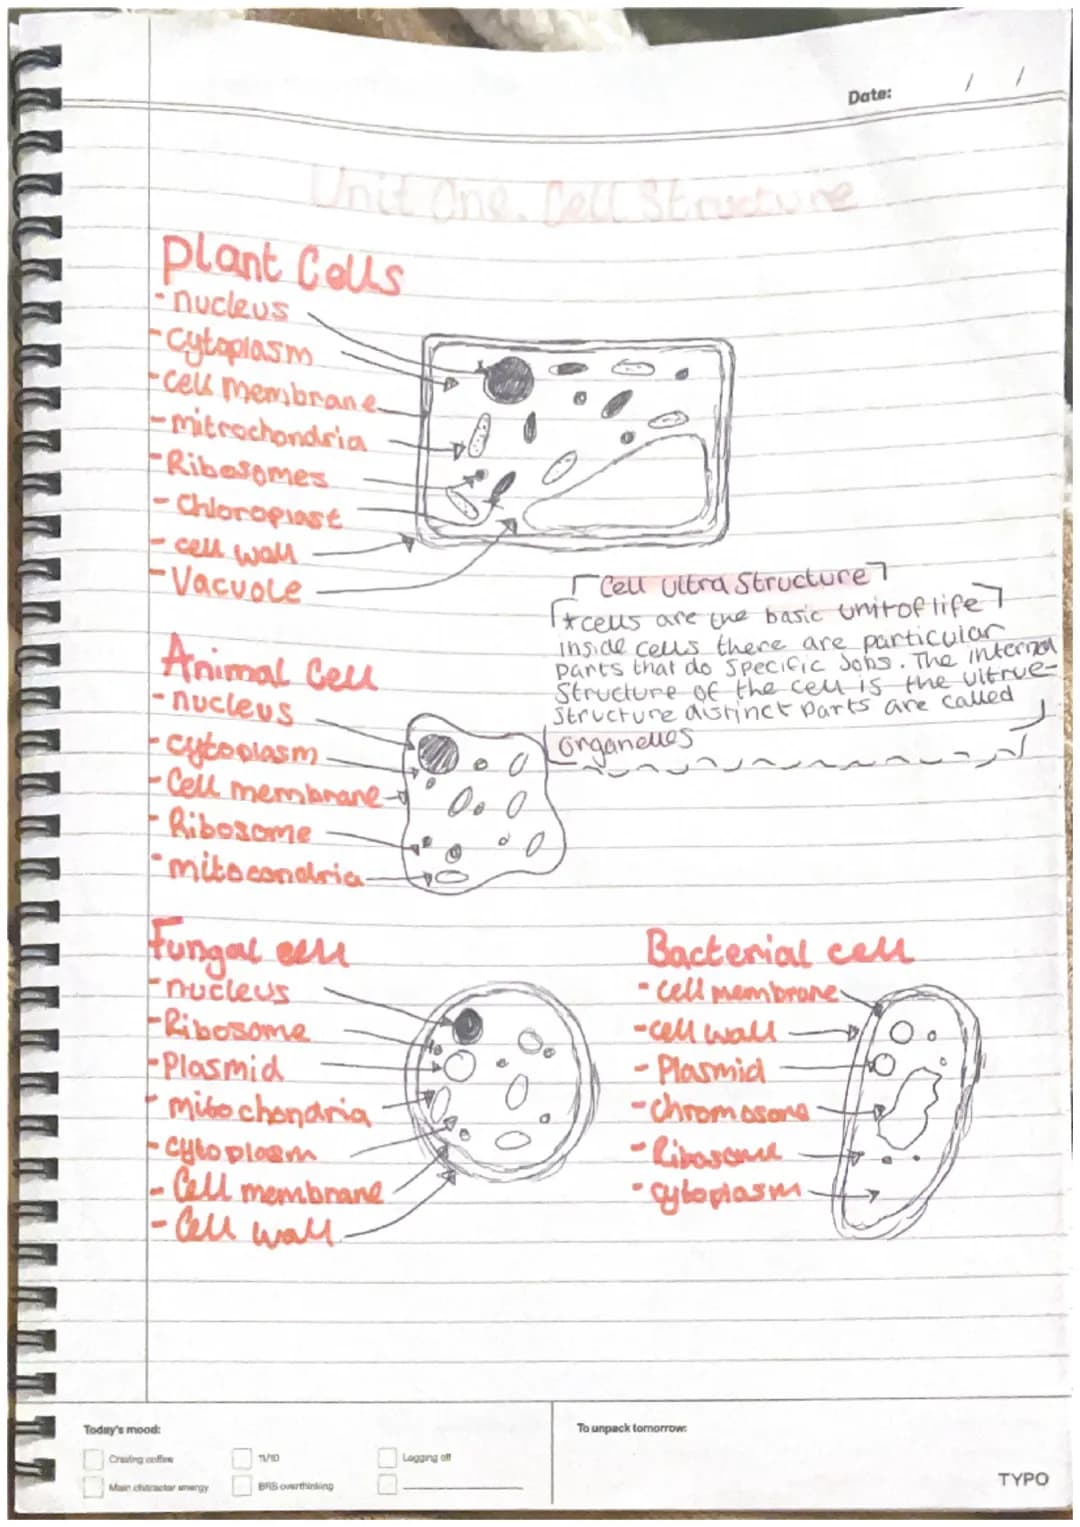 Date: / /
Unit One. Cell Structure
Plant Cells
- nucleus
- Cytoplasm
- Cell membrane
- mitrochondria
- Ribosomes
- Chloroplast
- cell wall
- Vacuole
Cell Ultra Structure
* cells are the basic unit of life
inside cells there are particular
parts that do specific Jobs. The internal
Structure of the cell is the ultrue-
structure distinct parts are called
organelles
Animal Cell
- nucleus
- cytoplasm
- Cell membrane
- Ribosome
- mitocondria
Fungal cell
- nucleus
- Ribosome
- Plasmid
- mitochondria
- cytoplasm
- Cell membrane
- Cell wall
Bacterial cell
- cell membrane
- cell wall
- Plasmid
- chromosone
- Ribosome
- cytoplasm
Today's mood:
Craving coffee
11/10
Logging off
Main character energy
BRB overthinking
To unpack tomorrow:
TYPO